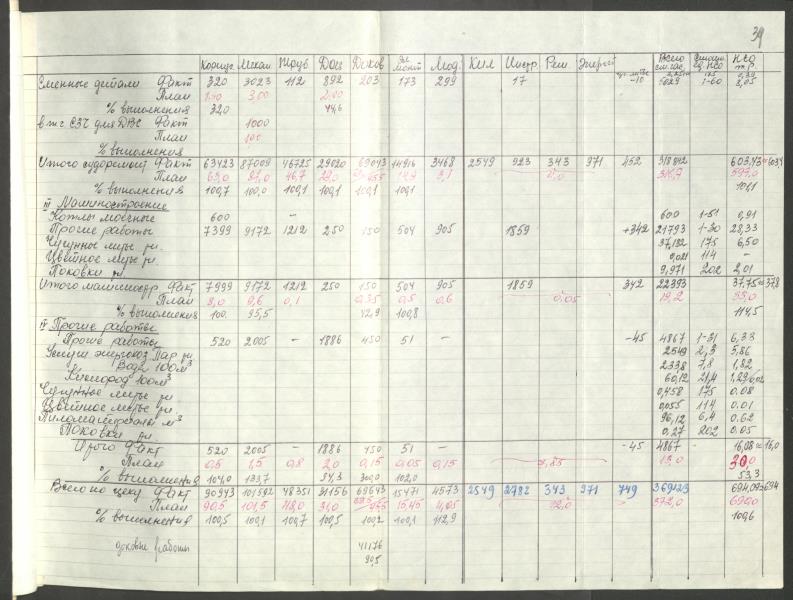 39
Корпус. Механ Труб Дост Доков Эл. монт Мод. Кил Инстр. Рем. Энерг. Всего см. час. НСО т.р.
Сменные детали Факт 320 3023 112 892 203 173 299 17 -10 5029 1-60 8,05
План 3,00 2,00
% выполнения 320 44,6
в т.ч. СЗЧ для ДВС Факт 1000
План
% выполнения
Итого судоремонт Факт 63423 87009 46725 29020 69043 14916 3468 2549 923 343 971 452 318842 603,43
План 63,0 87,0 46,7 29,0 14,9 3,1 599,0
% выполнения 100,7 100,0 100,1 100,1 100,1 100,1
III Машиностроение
Котлы моечные 600 – 600 1-51 0,91
Прочие работы 7399 9172 1212 250 150 504 905 1859 +342 21793 1-30 28,33
Чугунное литье 37,182 175 6,50
Цветное литье 0,021 114 –
Поковки 9,971 202 2,01
Итого машиностр. Факт 7999 9172 1212 250 150 504 905 1859 342 22393 37,75 = 37,8
План 8,0 9,6 0,1 0,35 0,5 0,6 0,05 19,2 33,0
% выполнения 100. 95,5 42,9 100,8 114,5
IV Прочие работы
Прочие работы 520 2005 – 1886 450 51 – -45 4867 1-31 6,33
Услуги энергохоз. Пар 2549 2,3 5,86
Вода 100м³ 2338 7,8 1,82
Кислород 100м³ 60,12 21,4 1,29
Чугунное литье 0,458 175 0.08
Цветное литье 0,055 114 0.01
Пиломатериалы м³ 96,12 6,4 0.62
Поковки 0,27 202 0.05
Итого Факт 520 2005 – 1886 450 51 – -45 4867 – 16,08 = 16,0
План 0,5 1,5 0,8 2,0 0,15 0,05 0,15 13,0 30,0
% выполнения 104,0 133,7 94,3 300,0 102,0 53,3
Всего по цеху Факт 90943 101592 48351 31156 69643 15471 4573 2549 2782 343 971 749 369123 694,09 = 694
План 90,5 101,5 48,0 31,0 15,45 4,05 372,0 690,0
% выполнения 100,5 100,1 100,7 100,5 100,2 100,1 112,9 100,6
доковые работы 41176
90,5